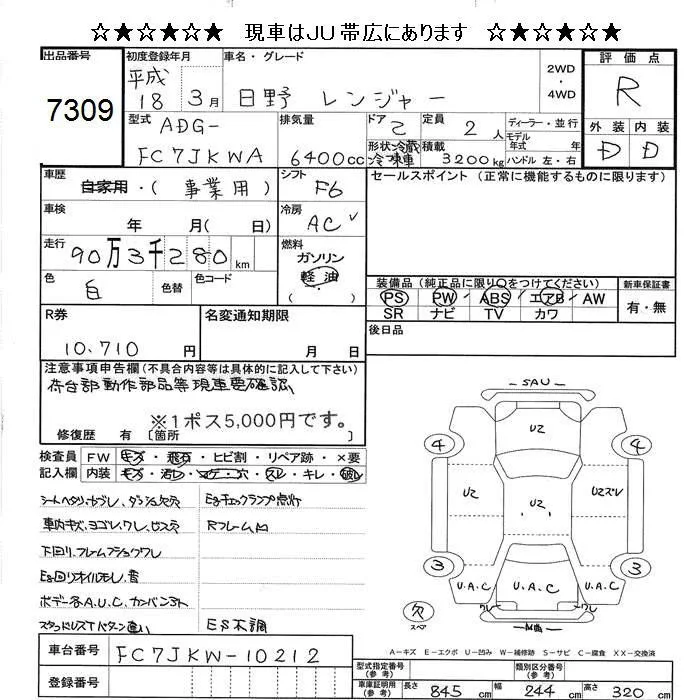 ☆★☆★☆★ 現車はJU帯広にあります ☆★☆★☆★
出品番号 初度登録年月 車名・グレード 評価点
7309
平成 18 3月 日野 レンジャー
2WD
・
4WD
R
外装 内装
D D
型式 排気量 ドア 定員 ディーラー・並行
ADG-
FC7JKWA 6400cc 2 2人
モデル年式 年
形状 冷蔵冷凍車 積載 3200kg ハンドル 左・右
車歴 シフト セールスポイント (正常に機能するものに限ります)
自家用・(事業用) F6
車検 冷房
年 月( 日) AC
走行 燃料
90万3千280km ガソリン
軽油
( )
色 色替 色コード
白
装備品 (純正品に限り○をつけてください) 新車保証書
PS PW ABS エアB AW 有・無
SR ナビ TV カワ
後日品
R券 名変通知期限
10,710 円 月 日
注意事項申告欄(不具合内容等は具体的に記入して下さい)
荷台部動作部品等現車要確認
※1ポス5,000円です。
修復歴 有 〔箇所
検査員 FW キズ・飛石・ヒビ割・リペア跡・×要
記入欄 内装 キズ・汚レ・コゲ・穴・スレ・キレ・破レ
シートヘタリ・ヤブレ、ダッシュ欠穴 Egチェックランプ点灯
車内キズ、ヨゴレ、ワレ、ビス穴 Rフレーム凹
下回リ、フレームブラケットワレ
Eg回リオイルモレ、音
ボデー各A.U.C、カンバン跡
スタッドレスTパターン違い ES不調
車台番号 FC7JKW-10212
登録番号
SAU
U2
4 4
U2 U2 U2ズレ
3 3
U.A.C U.A.C U.A.C
ワレ ワレ
欠
スペア
A-キズ E-エクボ U-凹み W-補修跡 S-サビ C-腐食 XX-交換済
型式指定番号(参考) 類別区分番号(参考)
車庫証明用(参考) 長さ 845cm 幅 244cm 高さ 320cm